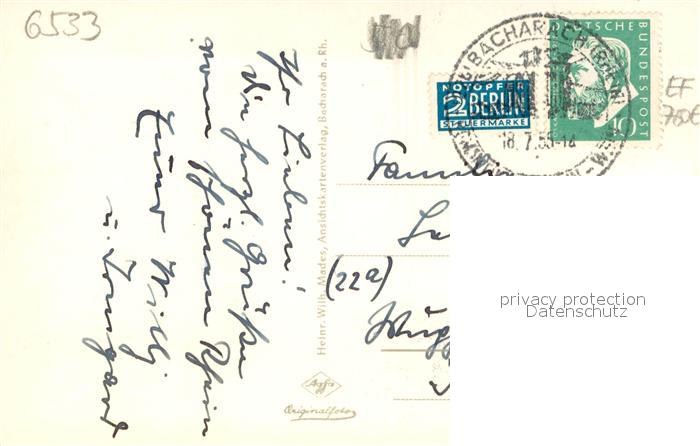 6533
Ihr Lieben!
die herzl. Grüße
vom schönen Rhein
Euer Willi
u. Irmgard
Heinr. Wilh. Mades, Ansichtskartenverlag, Bacharach a. Rh.
Agfa
Originalfoto
NOTOPFER
2 BERLIN
STEUERMARKE
BACHARACH (RHEIN)
18.7.55-14
DEUTSCHE
BUNDESPOST
10
EF
Famili
(22a)
Wupp
privacy protection
Datenschutz